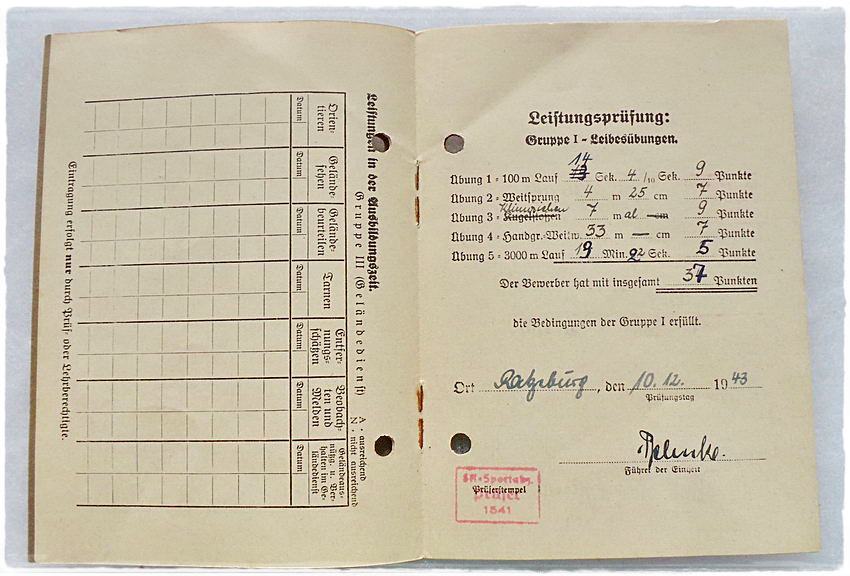 Leistungen in der Ausbildungszeit.
Gruppe III (Geländedienst)
A - ausreichend
N - nicht ausreichend
Orien-
tieren
Datum
Gelände-
sehen
Datum
Gelände-
beurteilen
Datum
Tarnen
Datum
Entfer-
nungs-
schätzen
Datum
Beobach-
ten und
Melden
Datum
Geländeaus-
nützg. u. Ver-
halten im Ge-
ländedienst
Datum
Eintragung erfolgt nur durch Prüf- oder Lehrberechtigte.
Leistungsprüfung:
Gruppe I - Leibesübungen.
14
Übung 1 = 100 m Lauf 13 Sek. 4/10 Sek. 9 Punkte
Übung 2 = Weitsprung 4 m 25 cm 7 Punkte
Klimmziehen
Übung 3 = Kugelstoßen 7 m al cm 9 Punkte
Übung 4 = Handgr.-Weitw. 33 m — cm 7 Punkte
Übung 5 = 3000 m Lauf 19 Min. 22 Sek. 5 Punkte
Der Bewerber hat mit insgesamt 37 Punkten
die Bedingungen der Gruppe I erfüllt.
Ort Ratzeburg, den 10.12. 1943
Prüfungstag
Führer der Einheit
SA-Sportabz.
Prüferstempel
Prüfer
1541